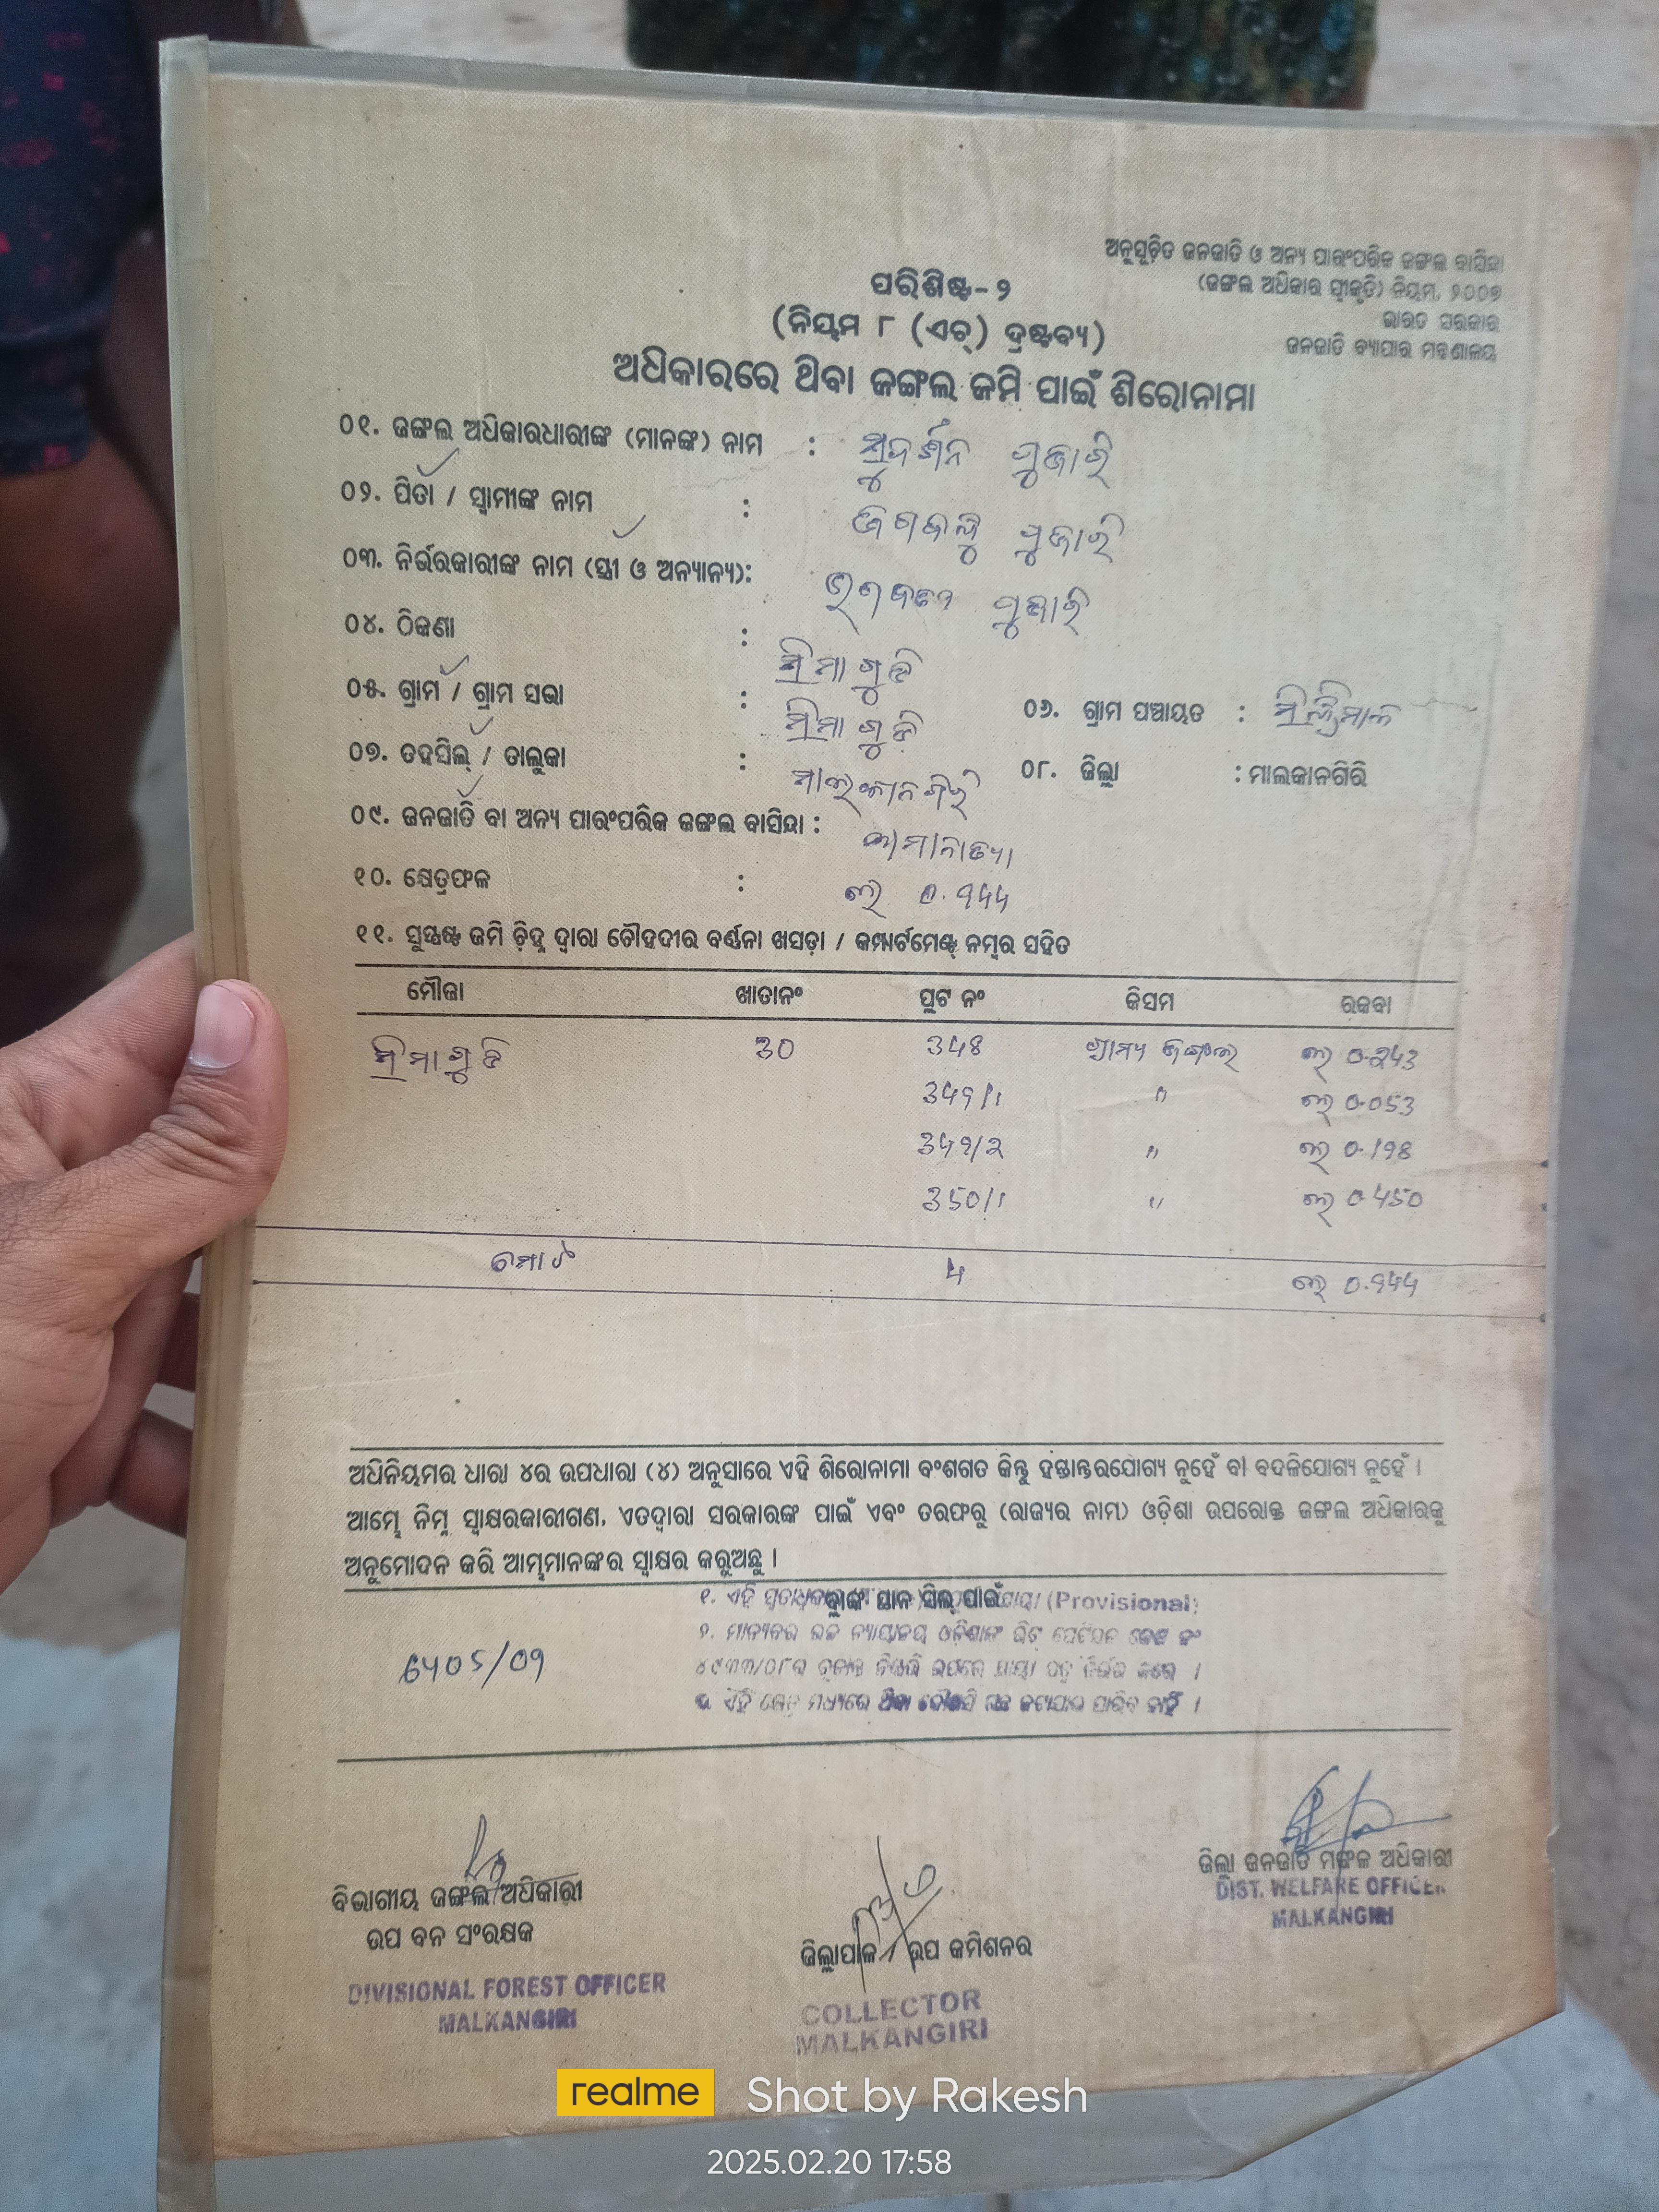 ଅନୁସୂଚିତ ଜନଜାତି ଓ ଅନ୍ୟ ପାରଂପରିକ ଜଙ୍ଗଲ ବାସିନ୍ଦା
(ଜଙ୍ଗଲ ଅଧିକାର ସ୍ୱୀକୃତି) ନିୟମ, ୨୦୦୭
ଭାରତ ସରକାର
ଜନଜାତି ବ୍ୟାପାର ମନ୍ତ୍ରଣାଳୟ
ପରିଶିଷ୍ଟ-୨
(ନିୟମ ୮ (ଏଚ୍) ଦ୍ରଷ୍ଟବ୍ୟ)
ଅଧିକାରରେ ଥିବା ଜଙ୍ଗଲ ଜମି ପାଇଁ ଶିରୋନାମା
୦୧. ଜଙ୍ଗଲ ଅଧିକାରଧାରୀଙ୍କ (ମାନଙ୍କ) ନାମ : ସୁଦର୍ଶନ ପୁଜାରି
୦୨. ପିତା / ସ୍ୱାମୀଙ୍କ ନାମ : ପୁଜାରି
୦୩. ନିର୍ଭରକାରୀଙ୍କ ନାମ (ସ୍ତ୍ରୀ ଓ ଅନ୍ୟାନ୍ୟ): ପୁଜାରି
୦୪. ଠିକଣା :
୦୫. ଗ୍ରାମ / ଗ୍ରାମ ସଭା : ୦୬. ଗ୍ରାମ ପଞ୍ଚାୟତ :
୦୭. ତହସିଲ୍ / ତାଲୁକା : ମାଲକାନଗିରି ୦୮. ଜିଲ୍ଲା : ମାଲକାନଗିରି
୦୯. ଜନଜାତି ବା ଅନ୍ୟ ପାରଂପରିକ ଜଙ୍ଗଲ ବାସିନ୍ଦା :
୧୦. କ୍ଷେତ୍ରଫଳ : ହେ 0.944
୧୧. ସୁସ୍ପଷ୍ଟ ଜମି ଚିହ୍ନ ଦ୍ୱାରା ଚୌହଦୀର ବର୍ଣ୍ଣନା ଖସଡ଼ା / କମ୍ପାର୍ଟମେଣ୍ଟ ନମ୍ବର ସହିତ
ମୌଜା ଖାତାନଂ ପ୍ଲଟ ନଂ କିସମ ରକବା
30 348 ଗ୍ରାମ୍ୟ ଜଙ୍ଗଲ ହେ 0.243
349/1 " ହେ 0.053
349/2 " ହେ 0.198
350/1 " ହେ 0.450
ମୋଟ 4 ହେ 0.944
ଅଧିନିୟମର ଧାରା ୪ର ଉପଧାରା (୪) ଅନୁସାରେ ଏହି ଶିରୋନାମା ବଂଶଗତ କିନ୍ତୁ ହସ୍ତାନ୍ତରଯୋଗ୍ୟ ନୁହେଁ ବା ବଦଳିଯୋଗ୍ୟ ନୁହେଁ ।
ଆମ୍ଭେ ନିମ୍ନ ସ୍ୱାକ୍ଷରକାରୀଗଣ, ଏତଦ୍ୱାରା ସରକାରଙ୍କ ପାଇଁ ଏବଂ ତରଫରୁ (ରାଜ୍ୟର ନାମ) ଓଡ଼ିଶା ଉପରୋକ୍ତ ଜଙ୍ଗଲ ଅଧିକାରକୁ
ଅନୁମୋଦନ କରି ଆମ୍ଭମାନଙ୍କର ସ୍ୱାକ୍ଷର କରୁଅଛୁ ।
୧. ଏହି ସ୍ଥାନ ସିଲ୍ ପାଇଁ (Provisional)
୨. ମାନ୍ୟବର ଉଚ୍ଚ ନ୍ୟାୟାଳୟ
୪୯୩୩/୦୮ର
ଏହି ମଧ୍ୟରେ ଥିବା କୌଣସି ଗଛ ପାରିବ ନାହିଁ ।
/09
ବିଭାଗୀୟ ଜଙ୍ଗଲ ଅଧିକାରୀ
ଉପ ବନ ସଂରକ୍ଷକ
DIVISIONAL FOREST OFFICER
MALKANGIRI
ଜିଲ୍ଲାପାଳ / ଉପ କମିଶନର
COLLECTOR
MALKANGIRI
ଜିଲ୍ଲା ଜନଜାତି ମଙ୍ଗଳ ଅଧିକାରୀ
DIST. WELFARE OFFICER
MALKANGIRI
realme Shot by Rakesh
2025.02.20 17:58